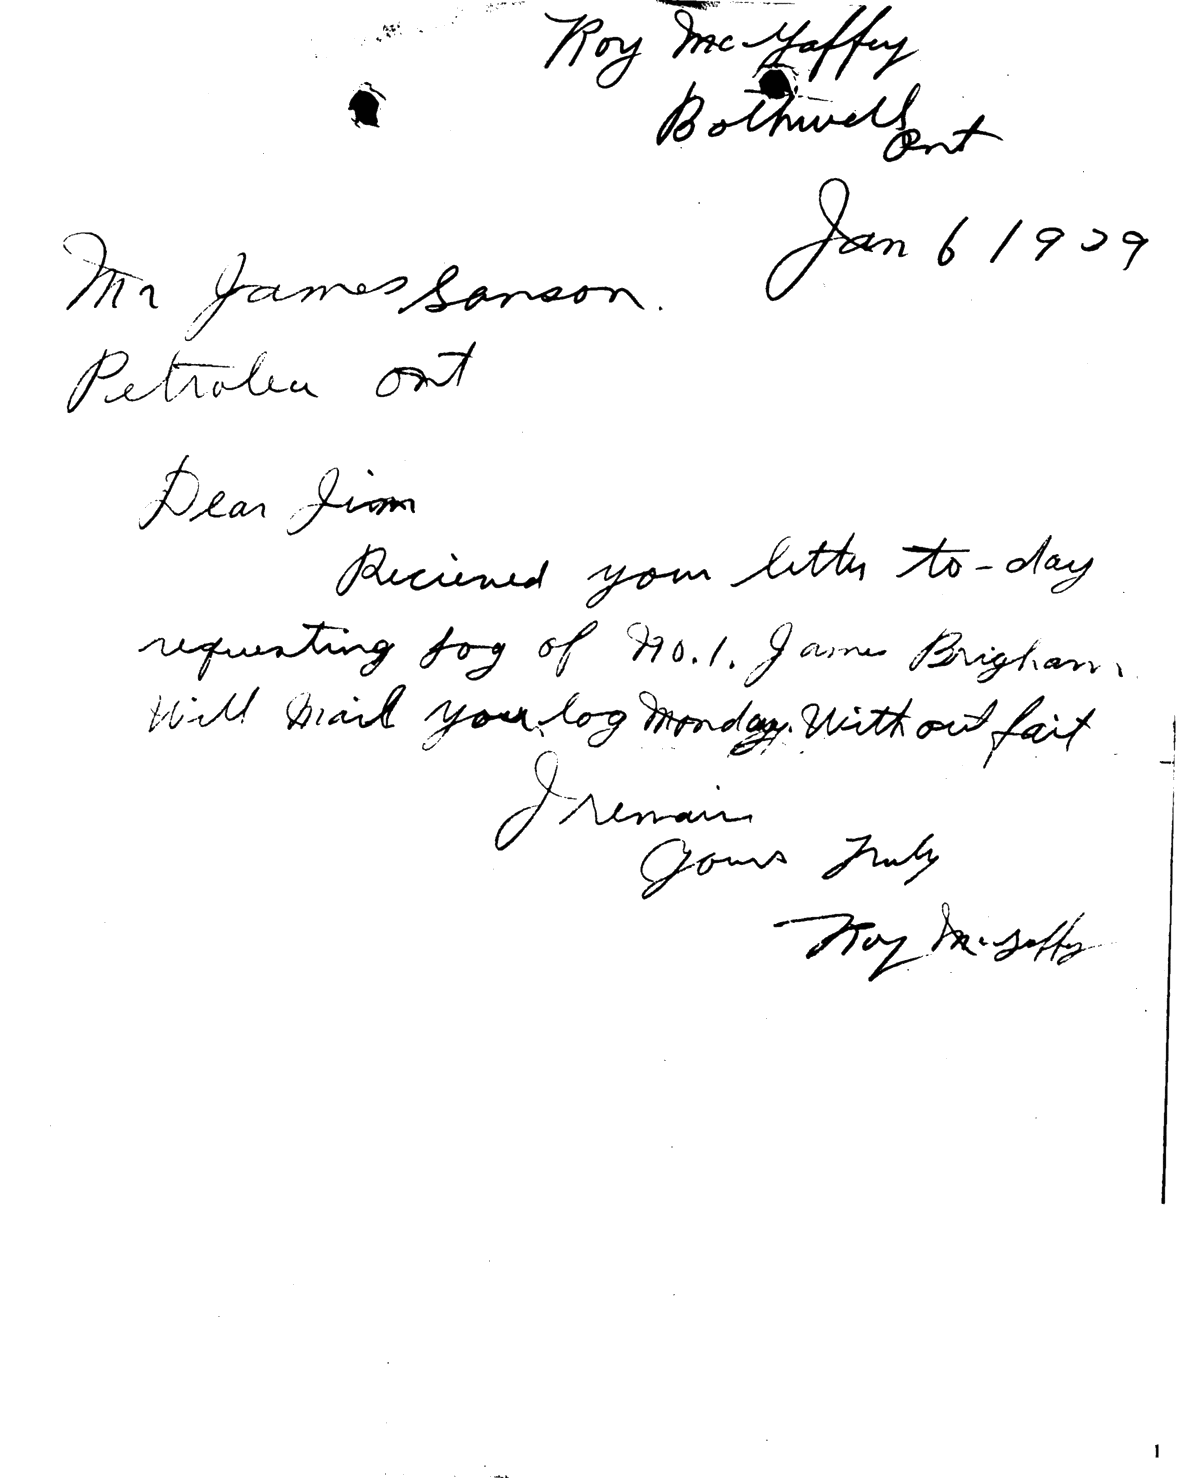 Roy McGaffey
Bothwell
Ont
Jan 6 1929
Mr James Sanson.
Petrolea Ont
Dear Jim
Recieved your letter to-day
requesting log of No. 1. James Brigham.
Will Mail you log Monday. Without fail
I remain
Yours Truly
Roy McGaffey
1